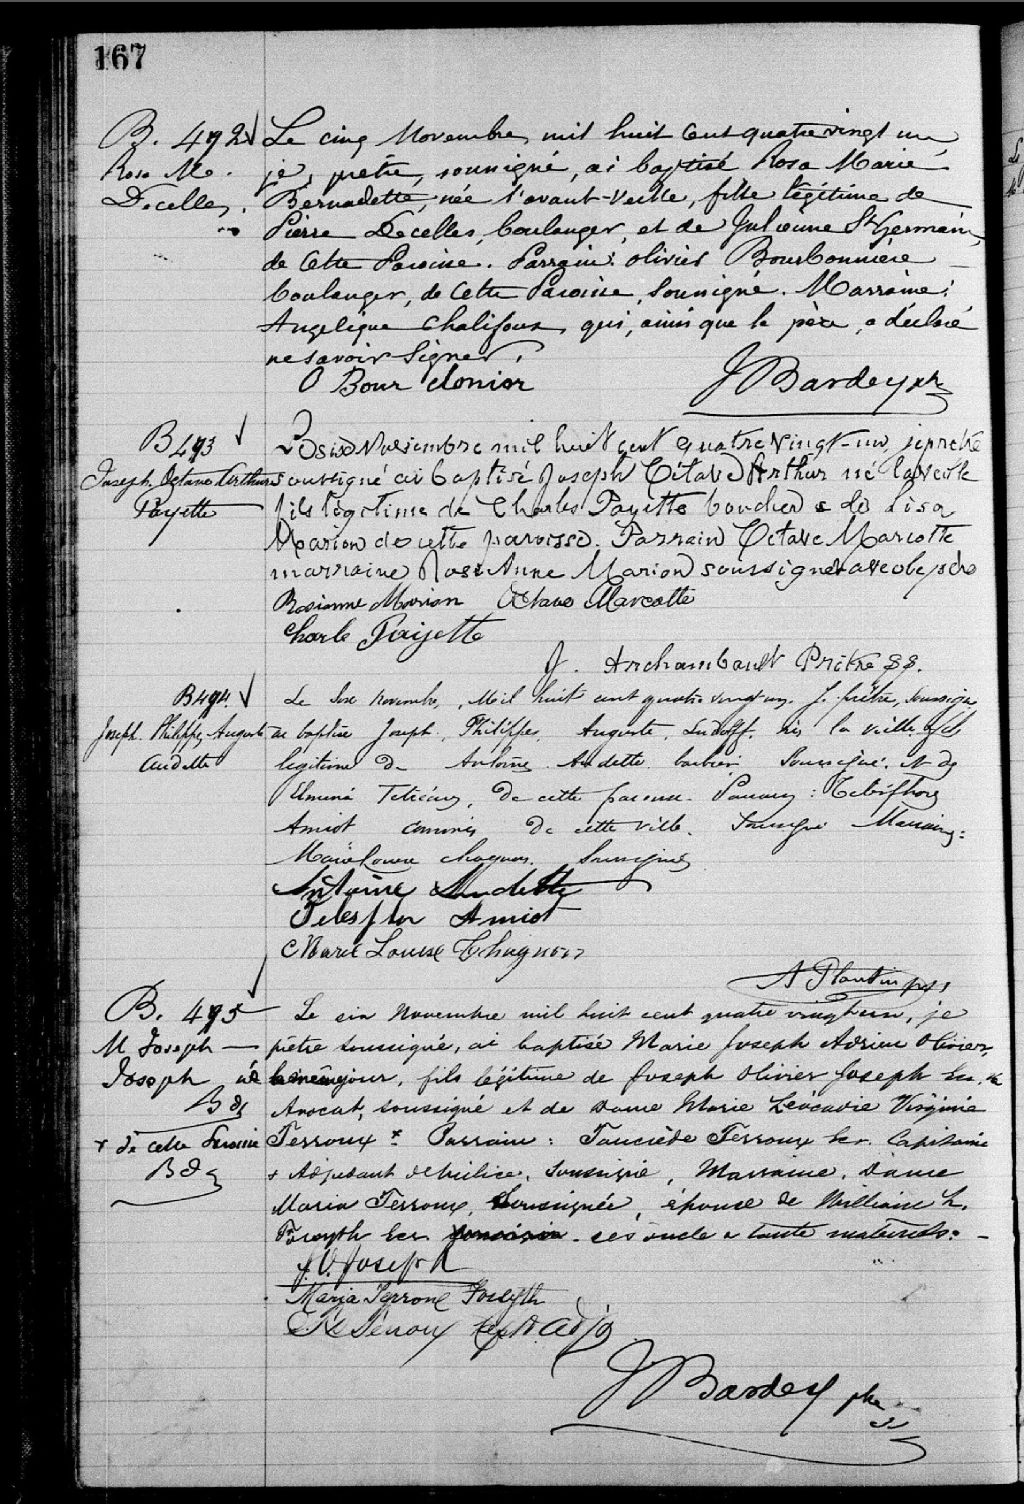 167
B. 492
Rosa M.
Decelles.
Le cinq Novembre, mil huit cent quatre vingt un
je, prêtre, soussigné, ai baptisé Rosa Marie
Bernadette, née l'avant-veille, fille légitime de
Pierre Decelles, boulanger, et de Julienne St Germain,
de cette Paroisse. Parrain: Olivier Bourbonnière
boulanger, de cette Paroisse, soussigné. Marraine:
Angelique Chalifoux, qui, ainsi que le père, a déclaré
ne savoir signer.
O Bour
J Bardey ptr
B 493
Joseph Octave Arthur
Payette
Le six Novembre mil huit cent quatre vingt-un, je prêtre
soussigné ai baptisé Joseph Octave Arthur né la veille
fils légitime de Charles Payette boucher & de Lisa
Marion de cette paroisse. Parrain Octave Marcotte
marraine Rose Anne Marion soussignés avec le père
Rosianne Marion Octave Marcotte
Charle Payette
J. Archambault Prêtre S S.
B 494.
Joseph Philippe Auguste
Audette
Le six novembre, mil huit cent quatre vingt un, Je prêtre, soussigné
ai baptisé Joseph, Philippe, Auguste, né la veille, fils
légitime de Antoine Audette barbier Soussigné. et de
de cette paroisse. Parrain:
Amiot commis de cette ville. Soussigné Marraine:
Marie Louise Chagnon. Soussignée
Antoine Audette
Telesflor Amiot
Marie Louise Chagnon
A Plantin ptr,
B. 495
M Joseph
Joseph né
B d
+ de cette Paroisse
B d
Le six Novembre mil huit cent quatre vingt un, je
prêtre soussigné, ai baptisé Marie Joseph Adrien Olivier,
le même jour, fils légitime de Joseph Olivier Joseph Ecr,
Avocat, soussigné et de Dame Marie Léocadie Virginie
Terroux + Parrain: Tancrède Terroux Ecr. Capitaine
& Adjudant de Milice, soussigné, Marraine, Dame
Maria Terroux, Soussignée, épouse de William H.
Forsyth Ecr. ses oncle & tante maternels.
J. O. Joseph
Maria Terroux Forsyth
Terroux Capt. Adj
J Bardey ptre